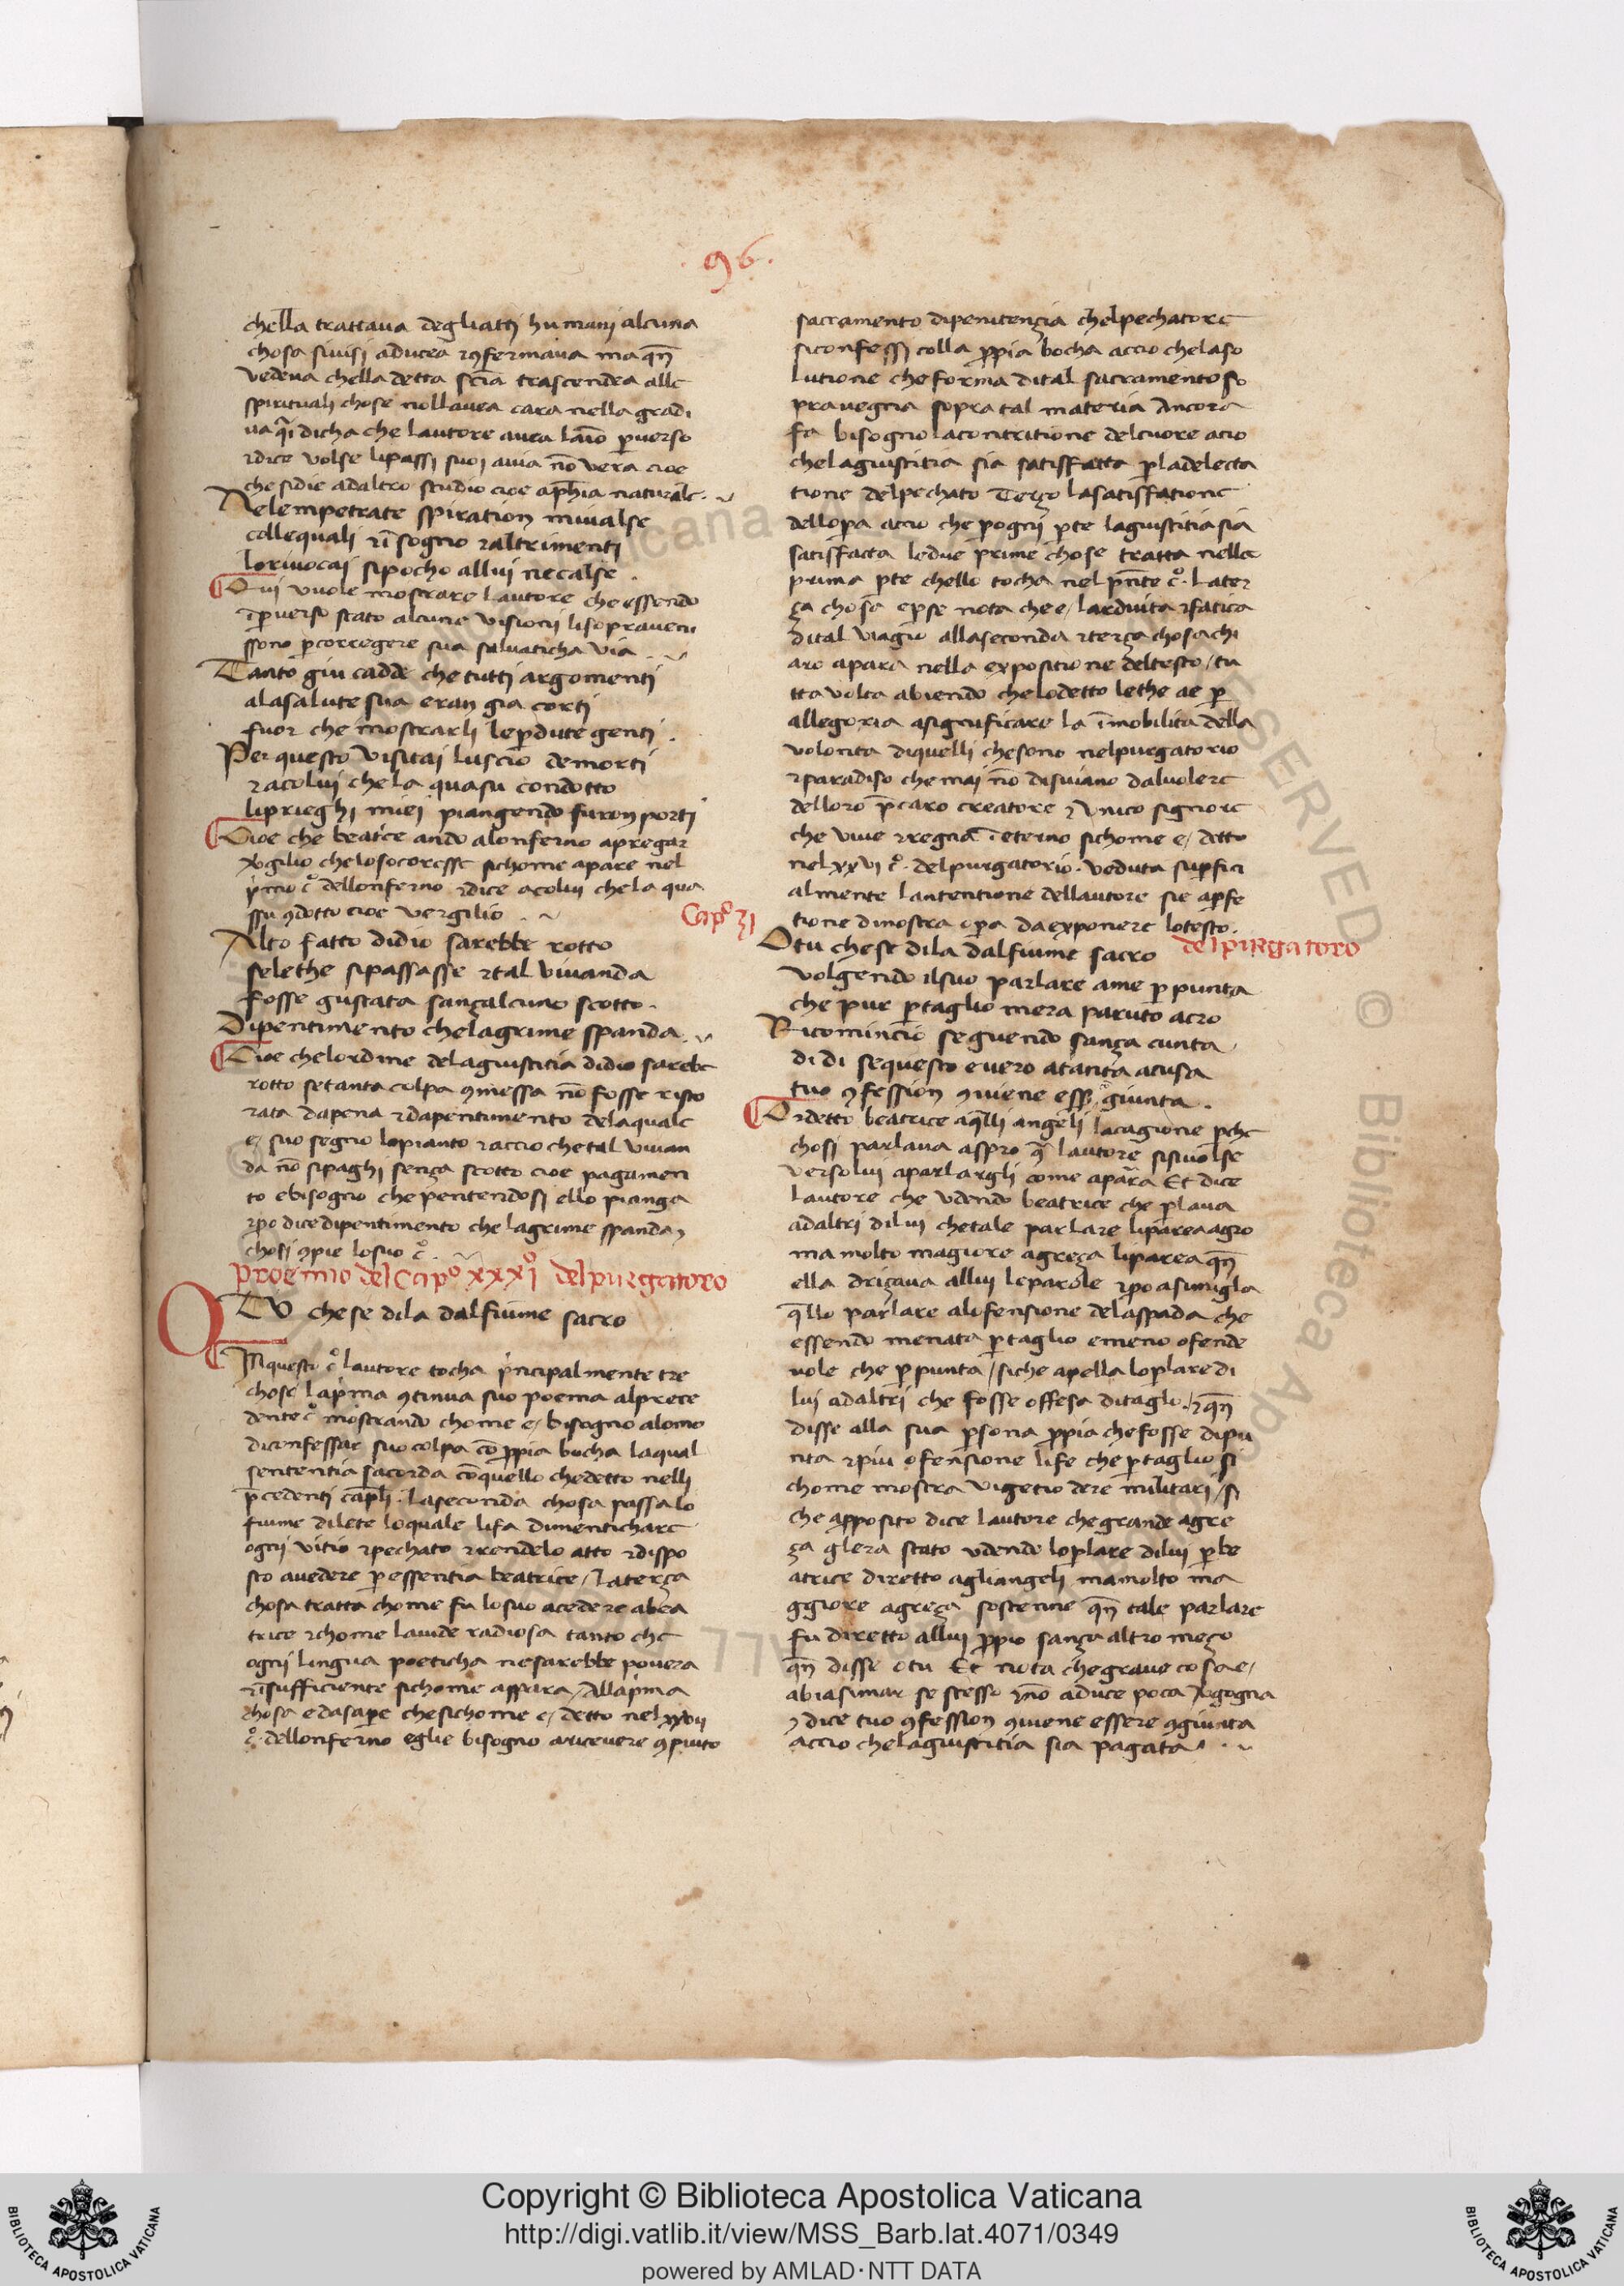 . 96 .
chella trattaua degliatti humani alcuna
chosa siuisi aducea ⁊ ꝯfermaua ma qn̄
vedeua chella detta scīa trascendea alle
spirituali chose nollauea cara nella gradi
ua qui dicha che lautore auea laīo ꝑuerso
⁊dice volse lipassi suoi auia nō vera cioe
che sidie adaltro studio cioe aphīa naturale .
Nelempetrate spiration miualse
collequali ⁊ī sogno ⁊altrimenti
loriuocai sipocho allui necalse .
Qui vuole mostrare lautore che essendo
īꝑuerso stato alcune visioni lisoprauenn
ssono ꝑcorregere sua saluaticha via
Tanto giu cadde che tutti argomenti
alasalute sua eran gia corti
fuor che mostrarli leꝑdute genti .
Per questo visitai luscio demorti
⁊acolui chela quasu condotto
liprieghi miei piangendo furon porti
Cioe che beatice ando alonferno apregar
vgilio chelosocoresse sichome apare nel
pͥmo cͦ dellonferno ⁊dice acolui chela qua
ssu ꝯdotto cioe vergilio
Alto fatto didio sarebbe rotto
selethe sipassasse ⁊tal viuanda
fosse gustata sançalcuno scotto .
Dipentimento chelagrime spanda
Cioe chelordine delagiustitia didio sarebe
rotto setanta colpa ꝯmessa nō fosse risto
rata dapena ⁊dapentimento delaquale
e/ suo segno lopianto ⁊accio chetal viuan
da nō sipaghi sença scotto cioe pagamen
to ebisogno che pentendosi ello pianga
⁊ꝑo dice dipentimento che lagrime spanda⁊
chosi ꝯpie losuo cͦ .
proemio del Capͦ xxxiͦ del purgatoro
O TV chese dila dalfiume sacro
IN questo cͦ lautore tocha pͥncipalmente tre
chose lapͥma ꝯtinua suo poema alprece
dente cͦ mostrando chome e/ bisogno alomo
diconfessar suo colpa cō ꝓpia bocha laqual
sententia sacorda cōquello chedetto nelli
p̄cedenti capli . laseconda chosa passa lo
fiume dilete loquale lifa dimentichare
ogni vitio ⁊pechato ⁊rendelo atto ⁊dispo
sto auedere ꝑ essentia beatrice / laterça
chosa tratta chome fu losuo acedere abea
trice ⁊chome lauide radiosa tanto che
ogni lingua poeticha nesarebbe pouera
⁊īsufficiente sichome appara / Allapͥma
chosa edasaꝑe chesichome e/ detto nel xxvii
cͦ . dellonferno eglie bisogno ariceuere ꝯpiuto
sacramento dipenitenzia chelpechatore
siconfessi colla ꝓpia bocha accio chelaso
lutione che forma dital sacramento so
prauegna sopra tal materia Ancora
fa bisogno lacontritione delcuore acio
chelagiustitia sia satisfatta ꝑladelecta
tione delpechato Terço lasatisfatione
dellopa acio che ꝑogni ꝑte lagiustitia sia
satisfacta ledue prime chose tratta nella
prima ꝑte chello tocha nel pn̄te cͦ . Later
ça chosa eꝑse nota che e/ larduita ⁊fatica
dital viagio allaseconda ⁊terça chosa chi
aro apara nella expositione deltesto / tu
tta volta abiendo chelodetto lethe ae ꝑ
allegoria asignificare la īmobilita della
volonta diquelli chesono nelpurgatorio
⁊paradiso che mai nō disuiano dalvolere
delloro p̄caro creatore ⁊ vnico signore
che viue ⁊regna ī eterno sichome e/ detto
nel xxvi cͦ . delpurgatorio . veduta suꝑfici
almente lantentione dellautore sie aꝑfe
tione dinostra oꝑa daexponere lotesto .
Capͦ 31
del purgatoro
O tu chese dila dalfiume sacro
volgendo ilsuo parlare ame ꝑ punta
che pur ꝑtaglio mera paruto acro
Ricomincio seguendo sança cunta
di di sequesto e vero atanta acusa
tuo ꝯfession ꝯuiene esser giunta .
Ordetto beatrice aq̄lli angeli lacagione ꝑche
chosi parlaua aspro q̄ lautore sisuolse
versolui aparlargli come apara Et dice
lautore che vdendo beatrice che ꝑlaua
adaltri dilui chetale parlare liparea agro
ma molto magiore agreça liparea qn̄
ella driçaua allui leparole ⁊ꝑo asimigla
q̄llo parlare alofensione delaspada che
essendo menata ꝑtaglio emeno ofende
uole che ꝑ punta / siche apella loꝑlare di
lui adaltri che fosse offesa ditaglo . ⁊qn̄
disse alla sua ꝑsona ꝓpia chefosse dipu
nta ⁊piu ofensione life che ꝑtaglio si
chome mostra vigetio dere militari / si
che apposito dice lautore chegrande agre
ça glera stato vdendo loꝑlare dilui ꝑ be
atrice diretto agliangeli mamolto ma
ggiore agreça sostenne qn̄ tale parlare
fu diretto allui ꝓpio sança altro meço
qn̄ disse o tu Et nota chegraue cosa e/
abiasimar se stesso ⁊nō aduce poca vgogna
⁊ dice tuo ꝯfession ꝯuiene essere ꝯgiunta
accio chelagiustitia sia pagata .
Copyright © Biblioteca Apostolica Vaticana
http://digi.vatlib.it/view/MSS_Barb.lat.4071/0349
powered by AMLAD·NTT DATA
BIBLIOTECA APOSTOLICA VATICANA
BIBLIOTECA APOSTOLICA VATICANA